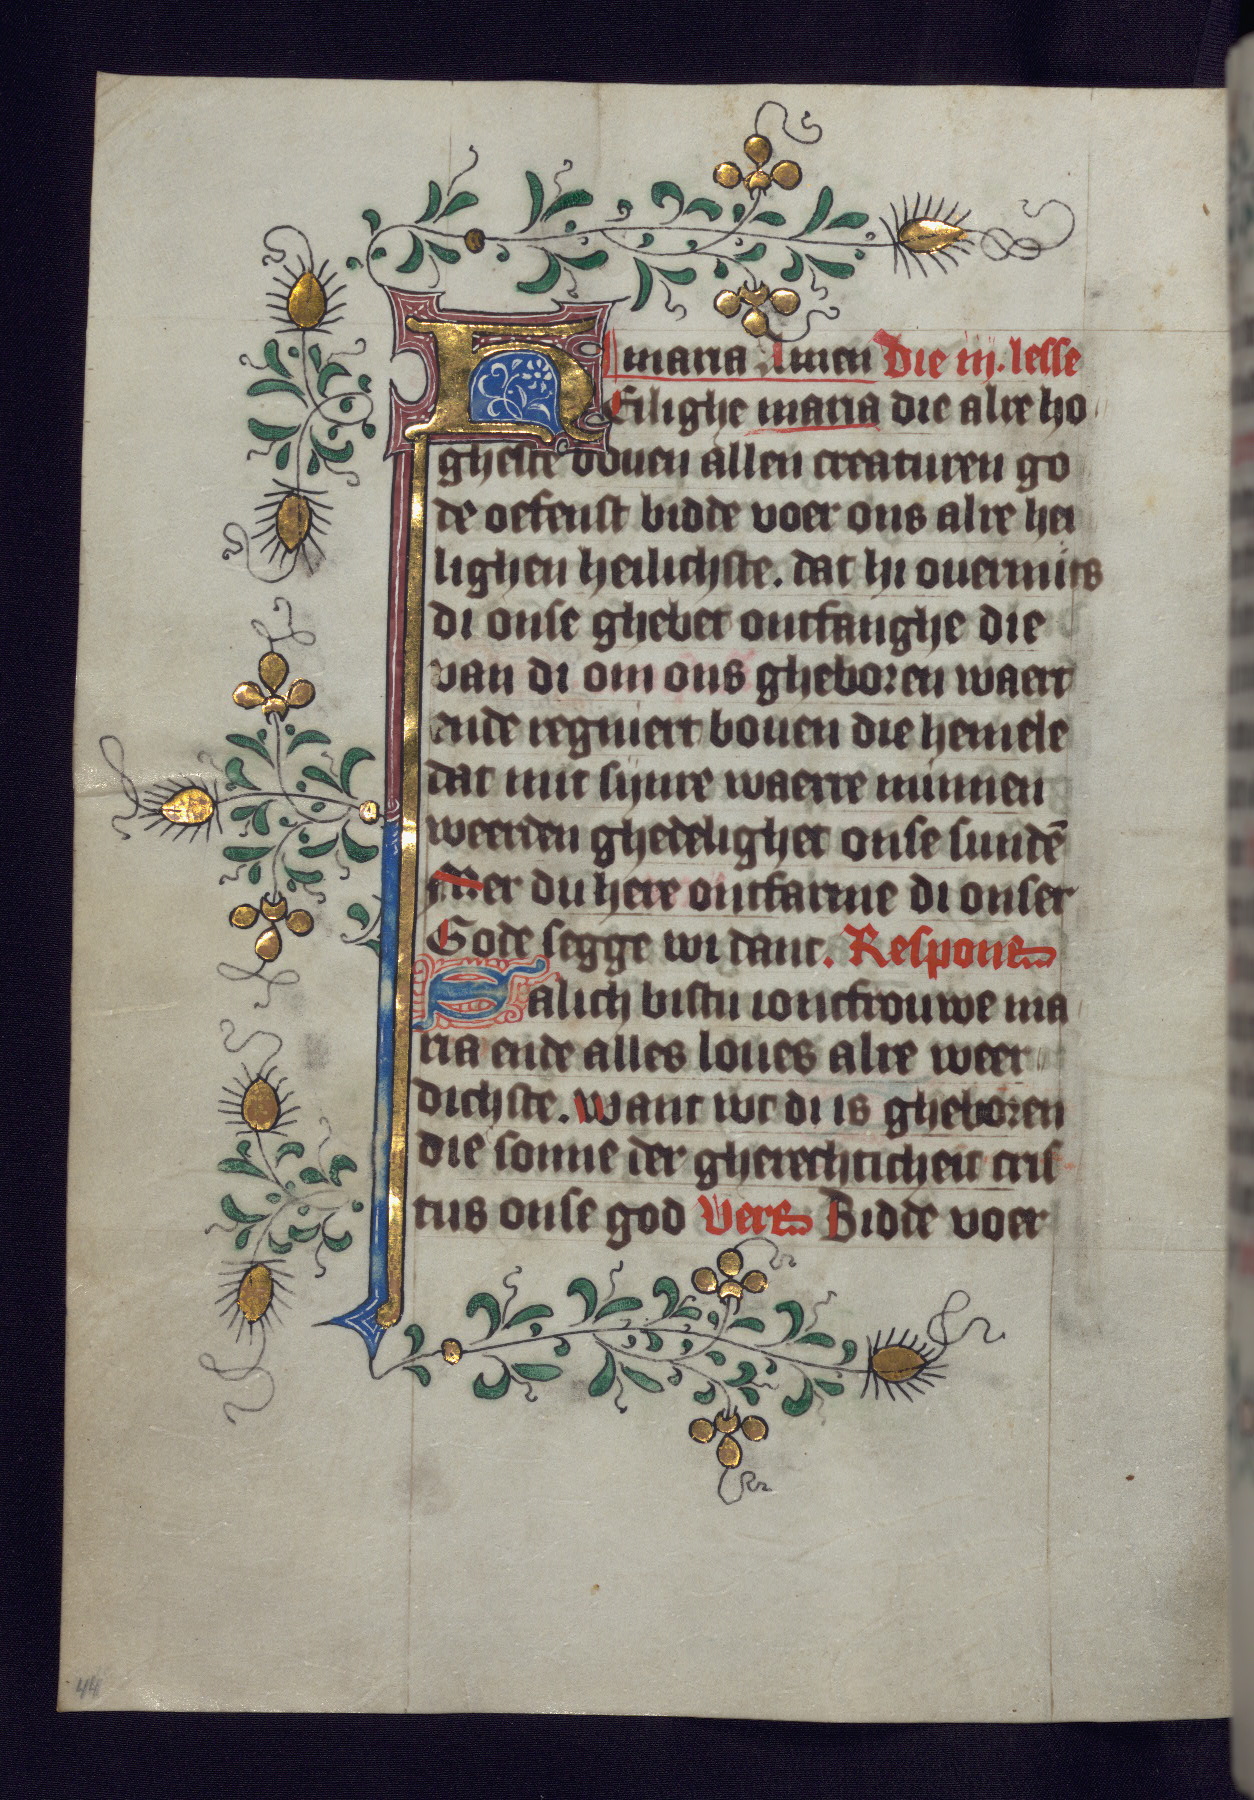 maria Amen Die iij. lesse
Heilighe maria die alre ho
gheste bouen allen creaturen go
de oefenst bidde voer ons alre hei
lighen heilichste. dat hi ouermits
di onse ghebet ontfanghe die
van di om ons gheboren waert
ende regniert bouen die hemele
dat mit sijnre waerre minnen
weerden ghedelighet onse sundē
Mer du here ontfarme di onser
Gode segge wi danc. Respons
Salich bistu ioncfrouwe ma
ria ende alles loues alre weer
dichste. Want wt di is gheboren
die sonne der gherechticheit cris
tus onse god Vers Bidde voer
44